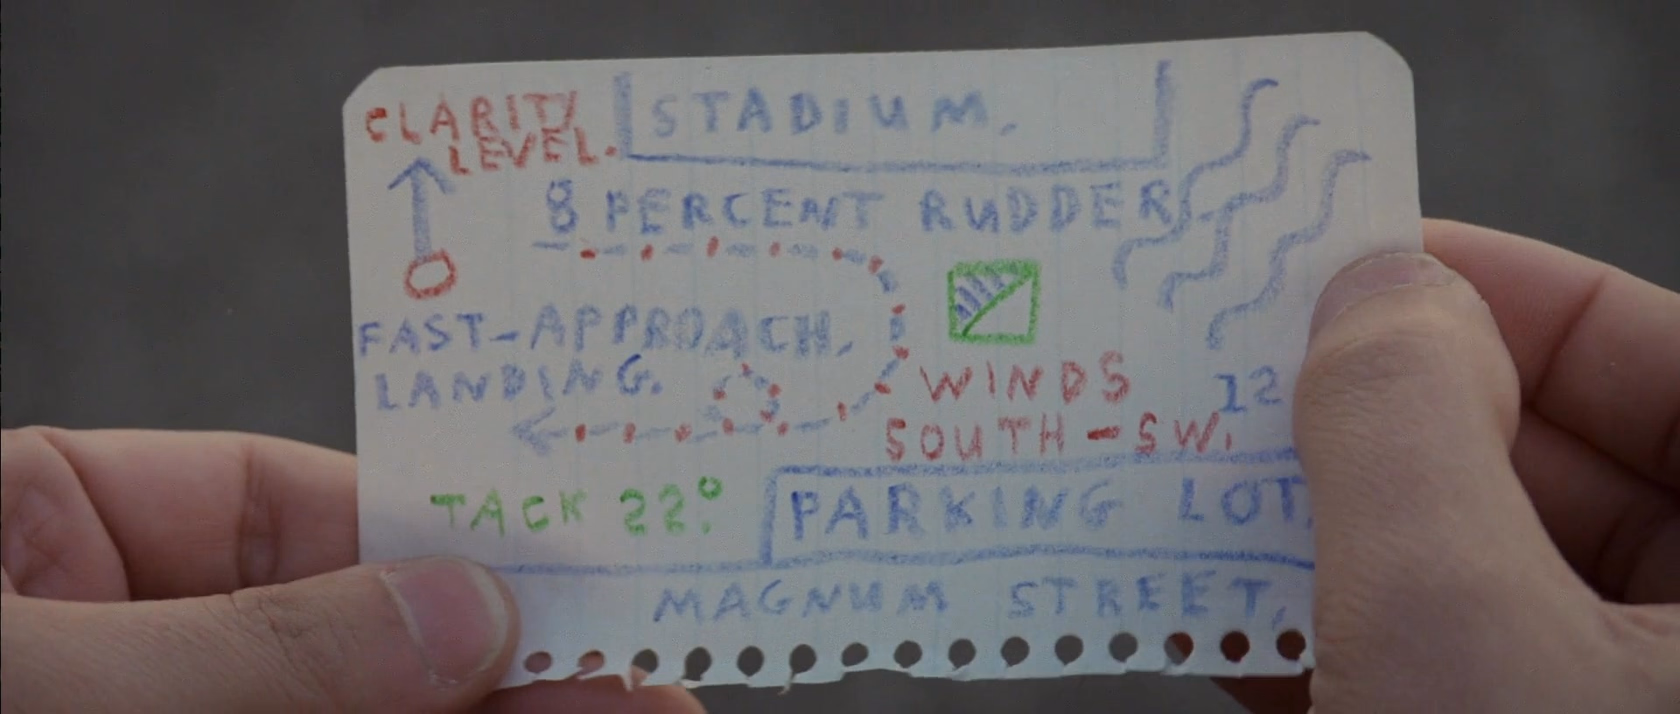 CLARITY
LEVEL.
STADIUM.
8 PERCENT RUDDER
FAST-APPROACH.
LANDING.
WINDS
SOUTH-SW.
12
TACK 22°.
PARKING LOT.
MAGNUM STREET.